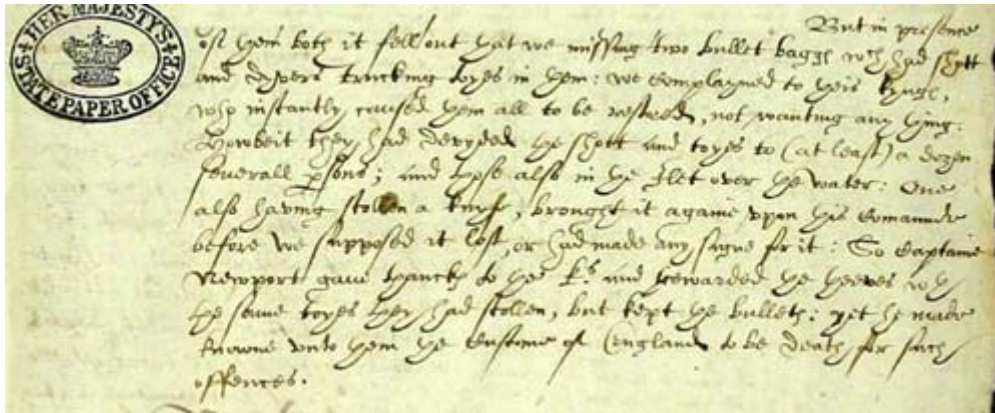 HER MAJESTYS
STATE PAPER OFFICE
But in presence
of them both it fell out that we missing two bullet bagges wch had shott
and dyvers trucking toyes in them: we complayned to theis kynges,
who instantly caused them all to be restored, not wanting any thing.
Howbeit they had devyded the shott and toyes to (at least) a dozen
severall psons; and those also in the Ilet over the water: One
also having stollen a knyfe, brought it againe vpon his comaunde
before we supposed it lost, or had made any signe for it: So Captaine
Newport gave thanckes to the ks and rewarded the theeves wth
the same toyes they had stollen, but kept the bulletes: yet he made
knowne vnto them the custome of England to be Death for such
offences.